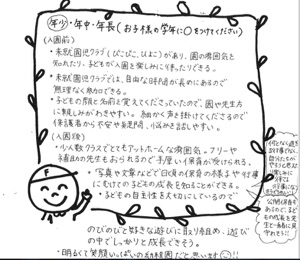 年少・年中・年長(お子様の学年に○をつけてください)
(入園前)
・未就園児クラブ(ぴこぴこ、ひよこ)があり、園の雰囲気を
知れたり、子どもが入園を楽しみに待ったりできる。
・未就園児クラブでは、自由な時間が長めにあるので
無理なく参加できる。
・子どもの顔と名前を覚えてくださっていたので、園や先生方
に親しみがわきやすい。細かく声を掛けてくださるので
保護者から不安や疑問、悩みを話しやすい。
(入園後)
・少人数クラスでとてもアットホームな雰囲気。フリーや
補助の先生もおられるので手厚い保育が受けられる。
・写真や文章などで日頃の保育の様子や行事
にむけての子どもの成長を知ることができる。
・子どもの自主性を大切にしているので
のびのびと好きな遊びに取り組め、遊び
の中でしっかりと成長できそう。
・明るくて笑顔いっぱいの幼稚園だと思います!!